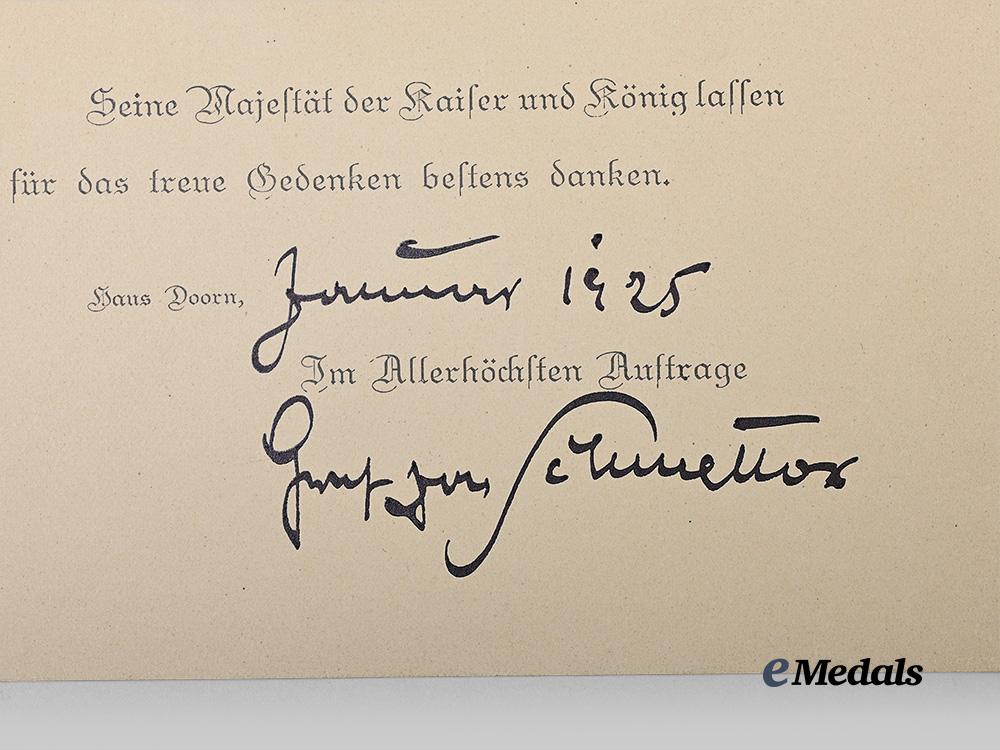 Seine Majeſtät der Kaiſer und König laſſen
für das treue Gedenken beſtens danken.
Haus Doorn, Januar 1925
Im Allerhöchſten Auftrage
Graf von Schmettow
eMedals